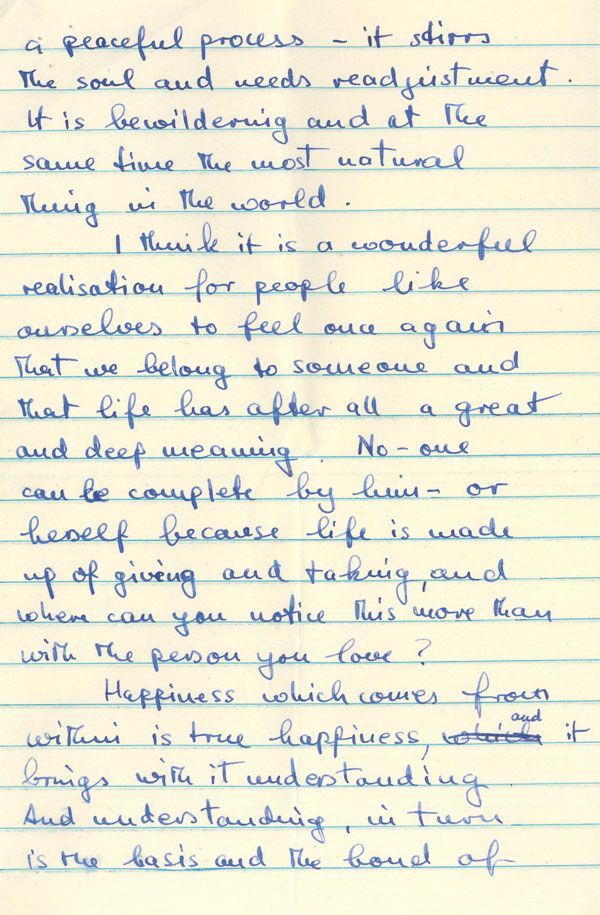 a peaceful process - it stirrs
the soul and needs readjustment.
It is bewildering and at the
same time the most natural
thing in the world.
I think it is a wonderful
realisation for people like
ourselves to feel once again
that we belong to someone and
that life has after all a great
and deep meaning. No-one
can be complete by him- or
herself because life is made
up of giving and taking, and
where can you notice this more than
with the person you love?
Happiness which comes from
within is true happiness, ~~which~~ and it
brings with it understanding.
And understanding, in turn
is the basis and the bond of